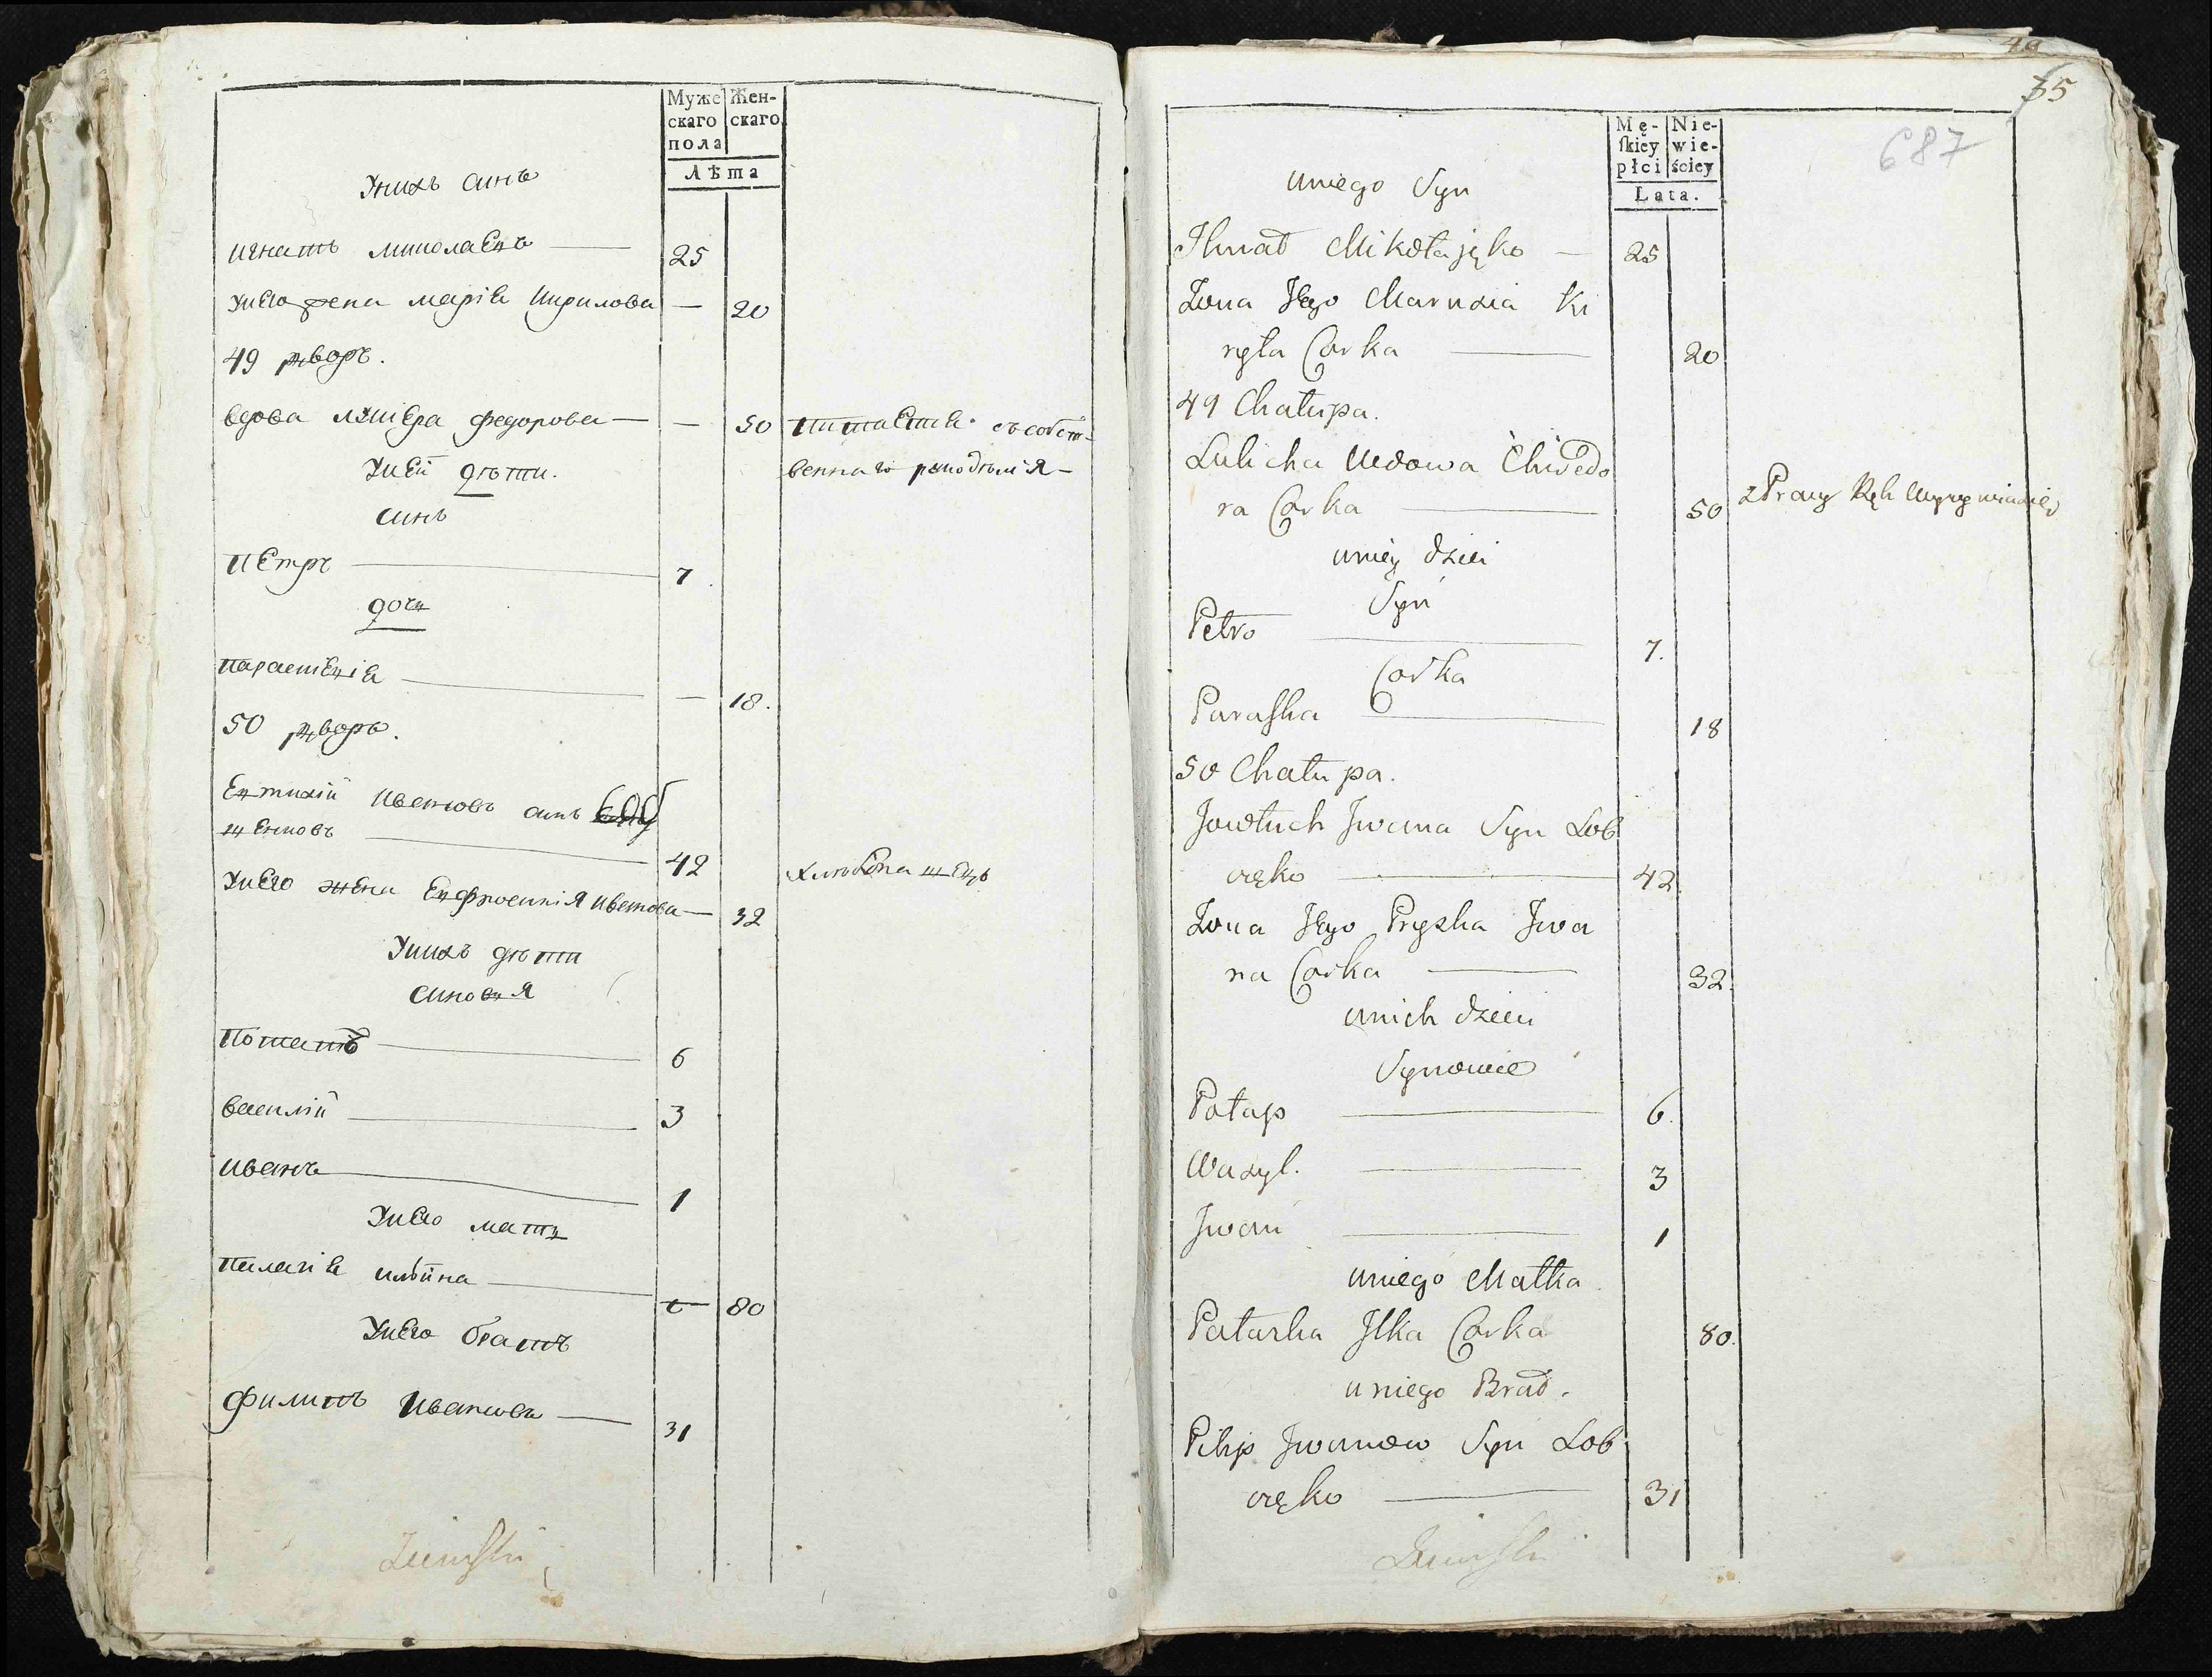 Муже
скаго
пола
Жен-
скаго
Лѣта
Унихъ синъ
игнатъ миколаенъ — 25
Унего жена марія кирилова — 20
49 дворъ.
вдова лукера федорова — — 50
питается съ собст-
веннаго рукоделія —
Уней дѣти.
синъ
петръ 7.
дочь
параскевія — 18.
50 дворъ.
Евтихій ивановъ синъ лоб
ченковъ 42
хлѣбопашецъ
Унего жена Евфросинія иванова — 32
Унихъ дѣти
синовья
потапъ 6
василій 3
иванъ 1
Унего мать
палагія ильина — 80
Унего братъ
филипъ ивановъ — 31
49
35
687
Mę-
skiey
płci
Nie-
wie-
ściey
Lata.
uniego Syn
Ihnat Mikołajęko — 25
Zona Jego Marusia Ki
ryła Corka 20
49 Chałupa.
Lulicha Wdowa Chwedo
ra Corka 50
z Pracy Rąk
uniey dzieci
Syn
Petro 7.
Corka
Paraska 18
50 Chałupa.
Jowtuch Jwana Syn Lob
częko 42
Zona Jego Pryska Jwa
na Corka 32.
unich dzieci
Synowie
Potap 6.
Wasyl. 3
Jwan 1
uniego Matka
Pałaszka Jlka Corka 80.
uniego Brat.
Pilip Jwanow Syn Lob
częko 31